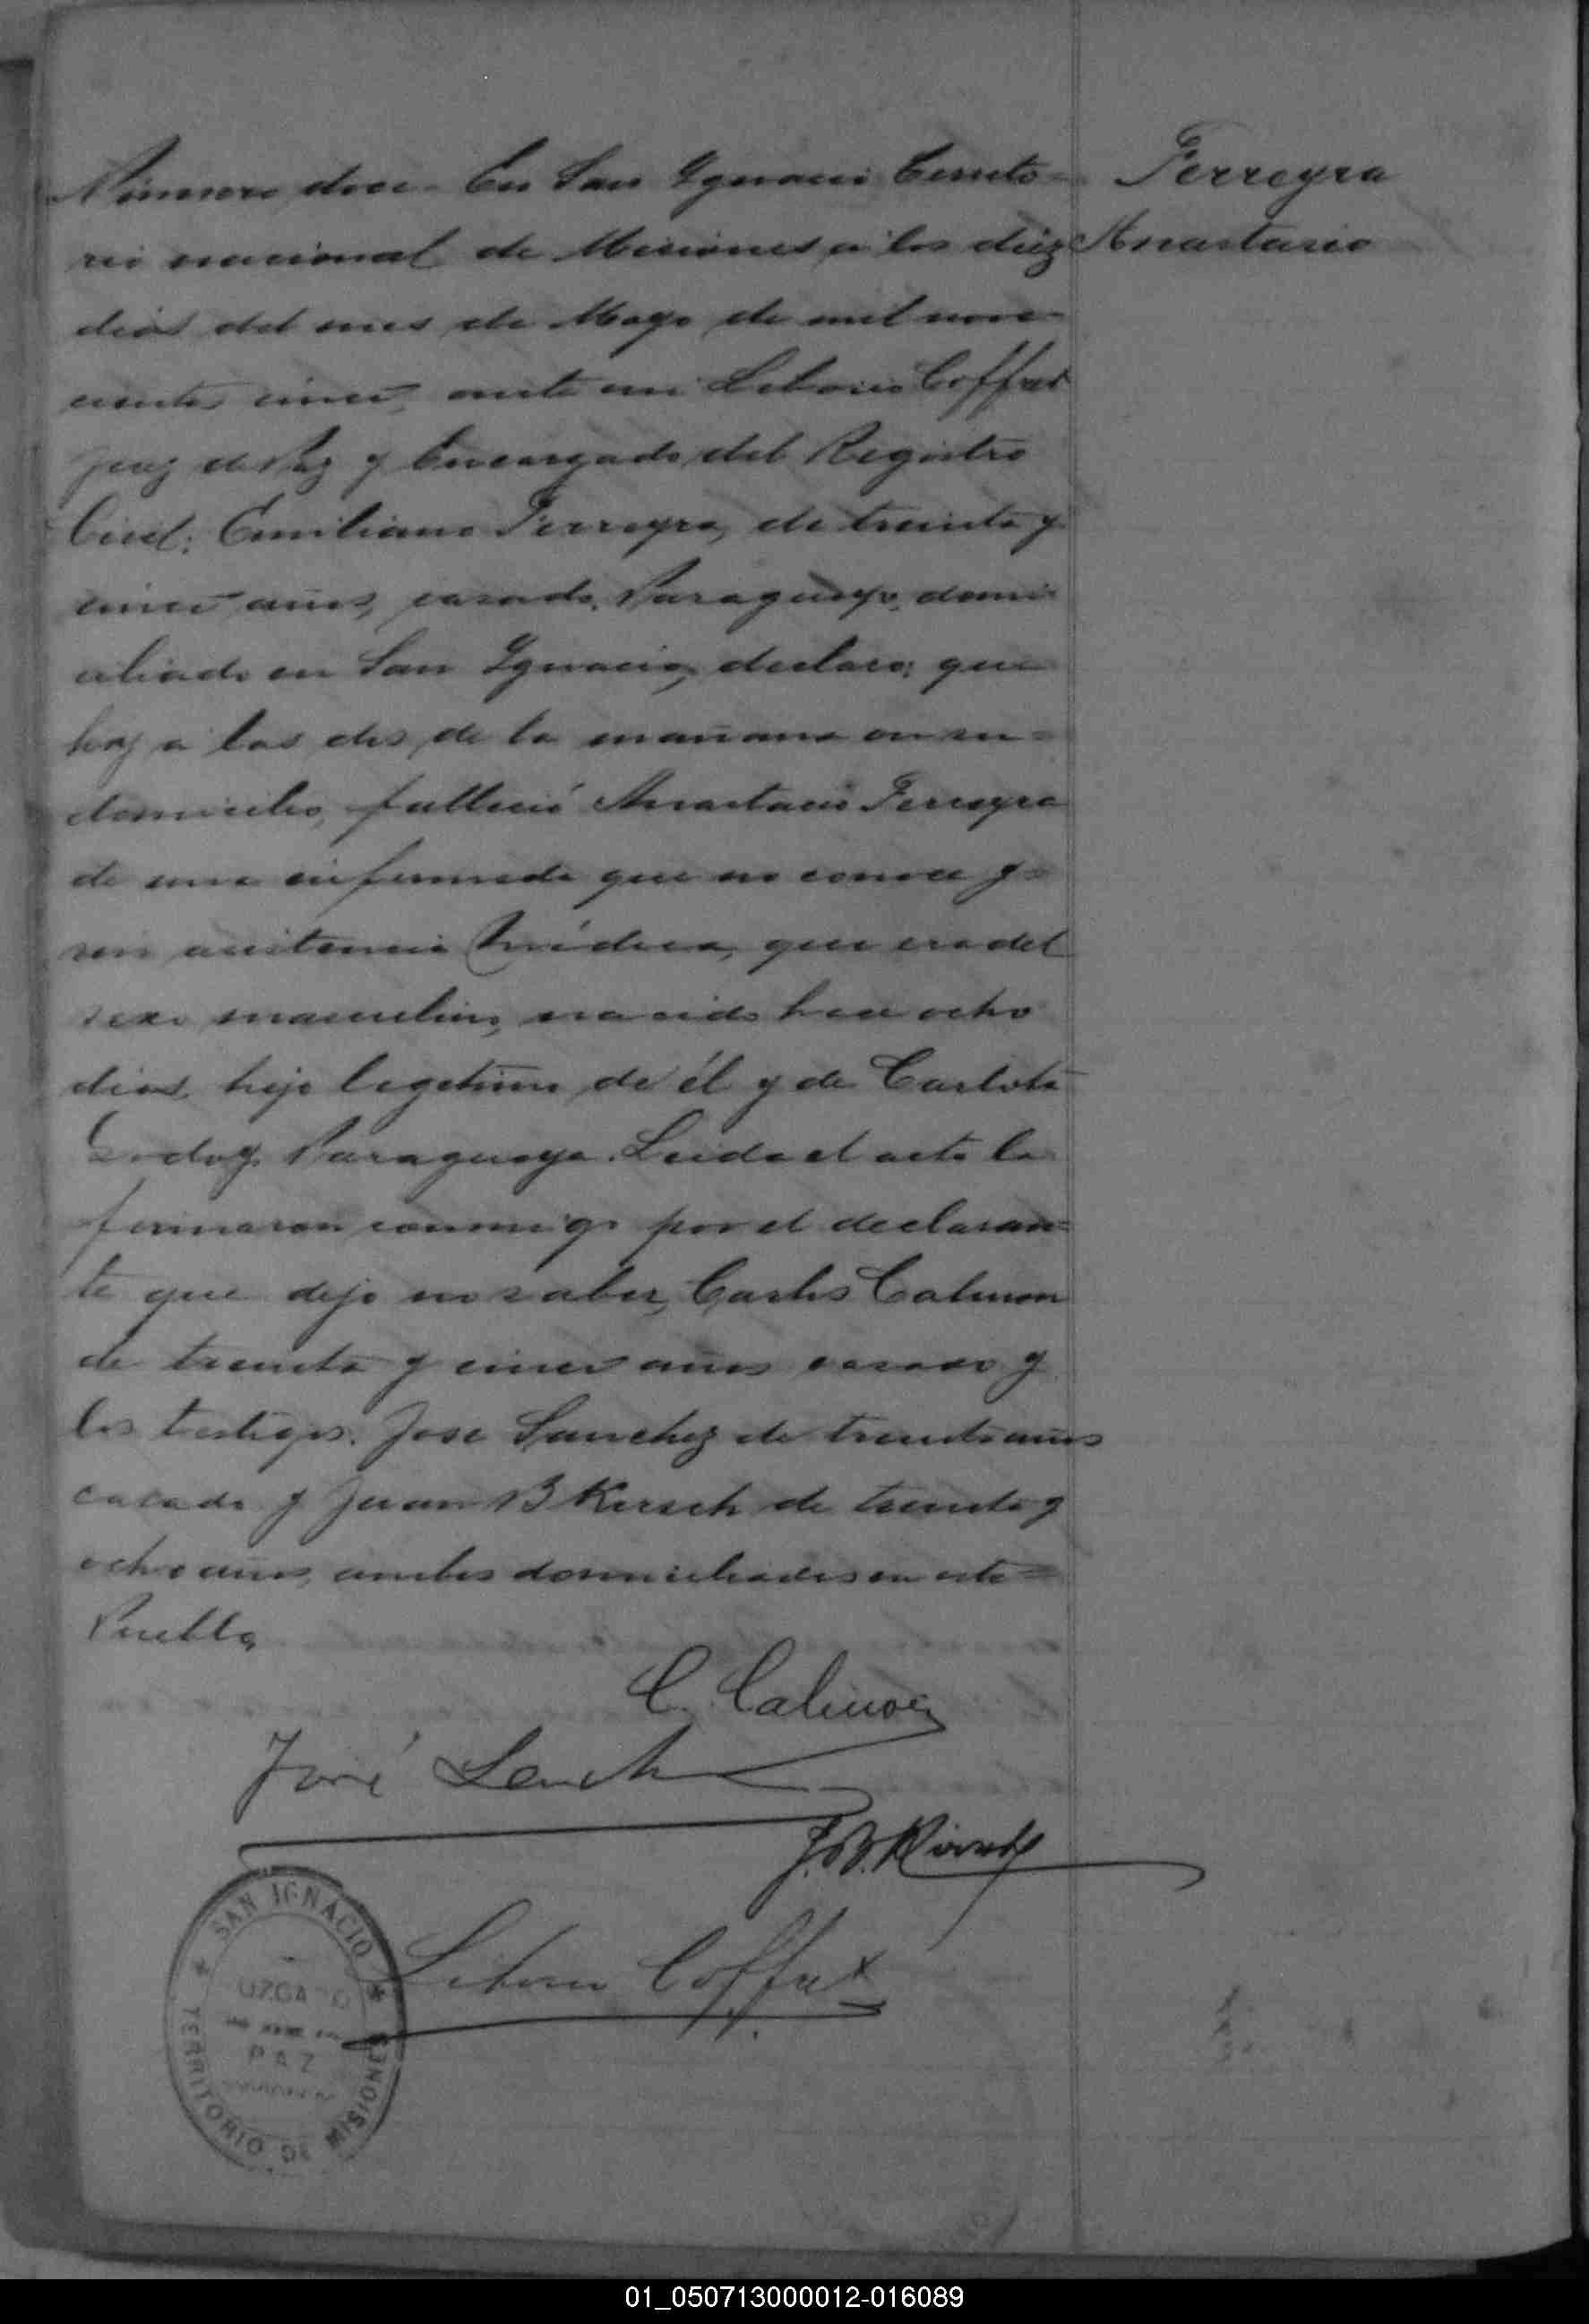 Número doce. En San Ignacio Territo-
rio nacional de Misiones a los diez
dias del mes de Mayo de mil nove-
cientos cinco, ante mi Liborio Coffret
Juez de Paz y Encargado del Registro
Civil: Emiliano Ferreyra, de treinta y
cinco años, casado, Paraguayo, domi-
ciliado en San Ignacio, declaro: que
hoy a las dos de la mañana en su-
domicilio, falleció Anastacio Ferreyra
de una enfermeda que no conoce y-
sin asistencia médica, que era del
sexo masculino, nacido hace ocho
dias, hijo legitimo de él y de Carlota
Godoy, Paraguaya. Leida el acta la
firmaron conmigo por el declaran-
te que dijo no saber, Carlos Calmon
de treinta y cinco años casado y
los testigos. Jose Sanchez de treinta años
casado y Juan B Kirsch de treinta y
ocho años, ambos domiciliados en este
Pueblo,
Ferreyra
Anastacio
C. Calmon
José Sanch
J. B. Kirsch
Liborio Coffret
SAN IGNACIO
UZGADO
PAZ
TERRITORIO DE MISIONES
01_050713000012-016089